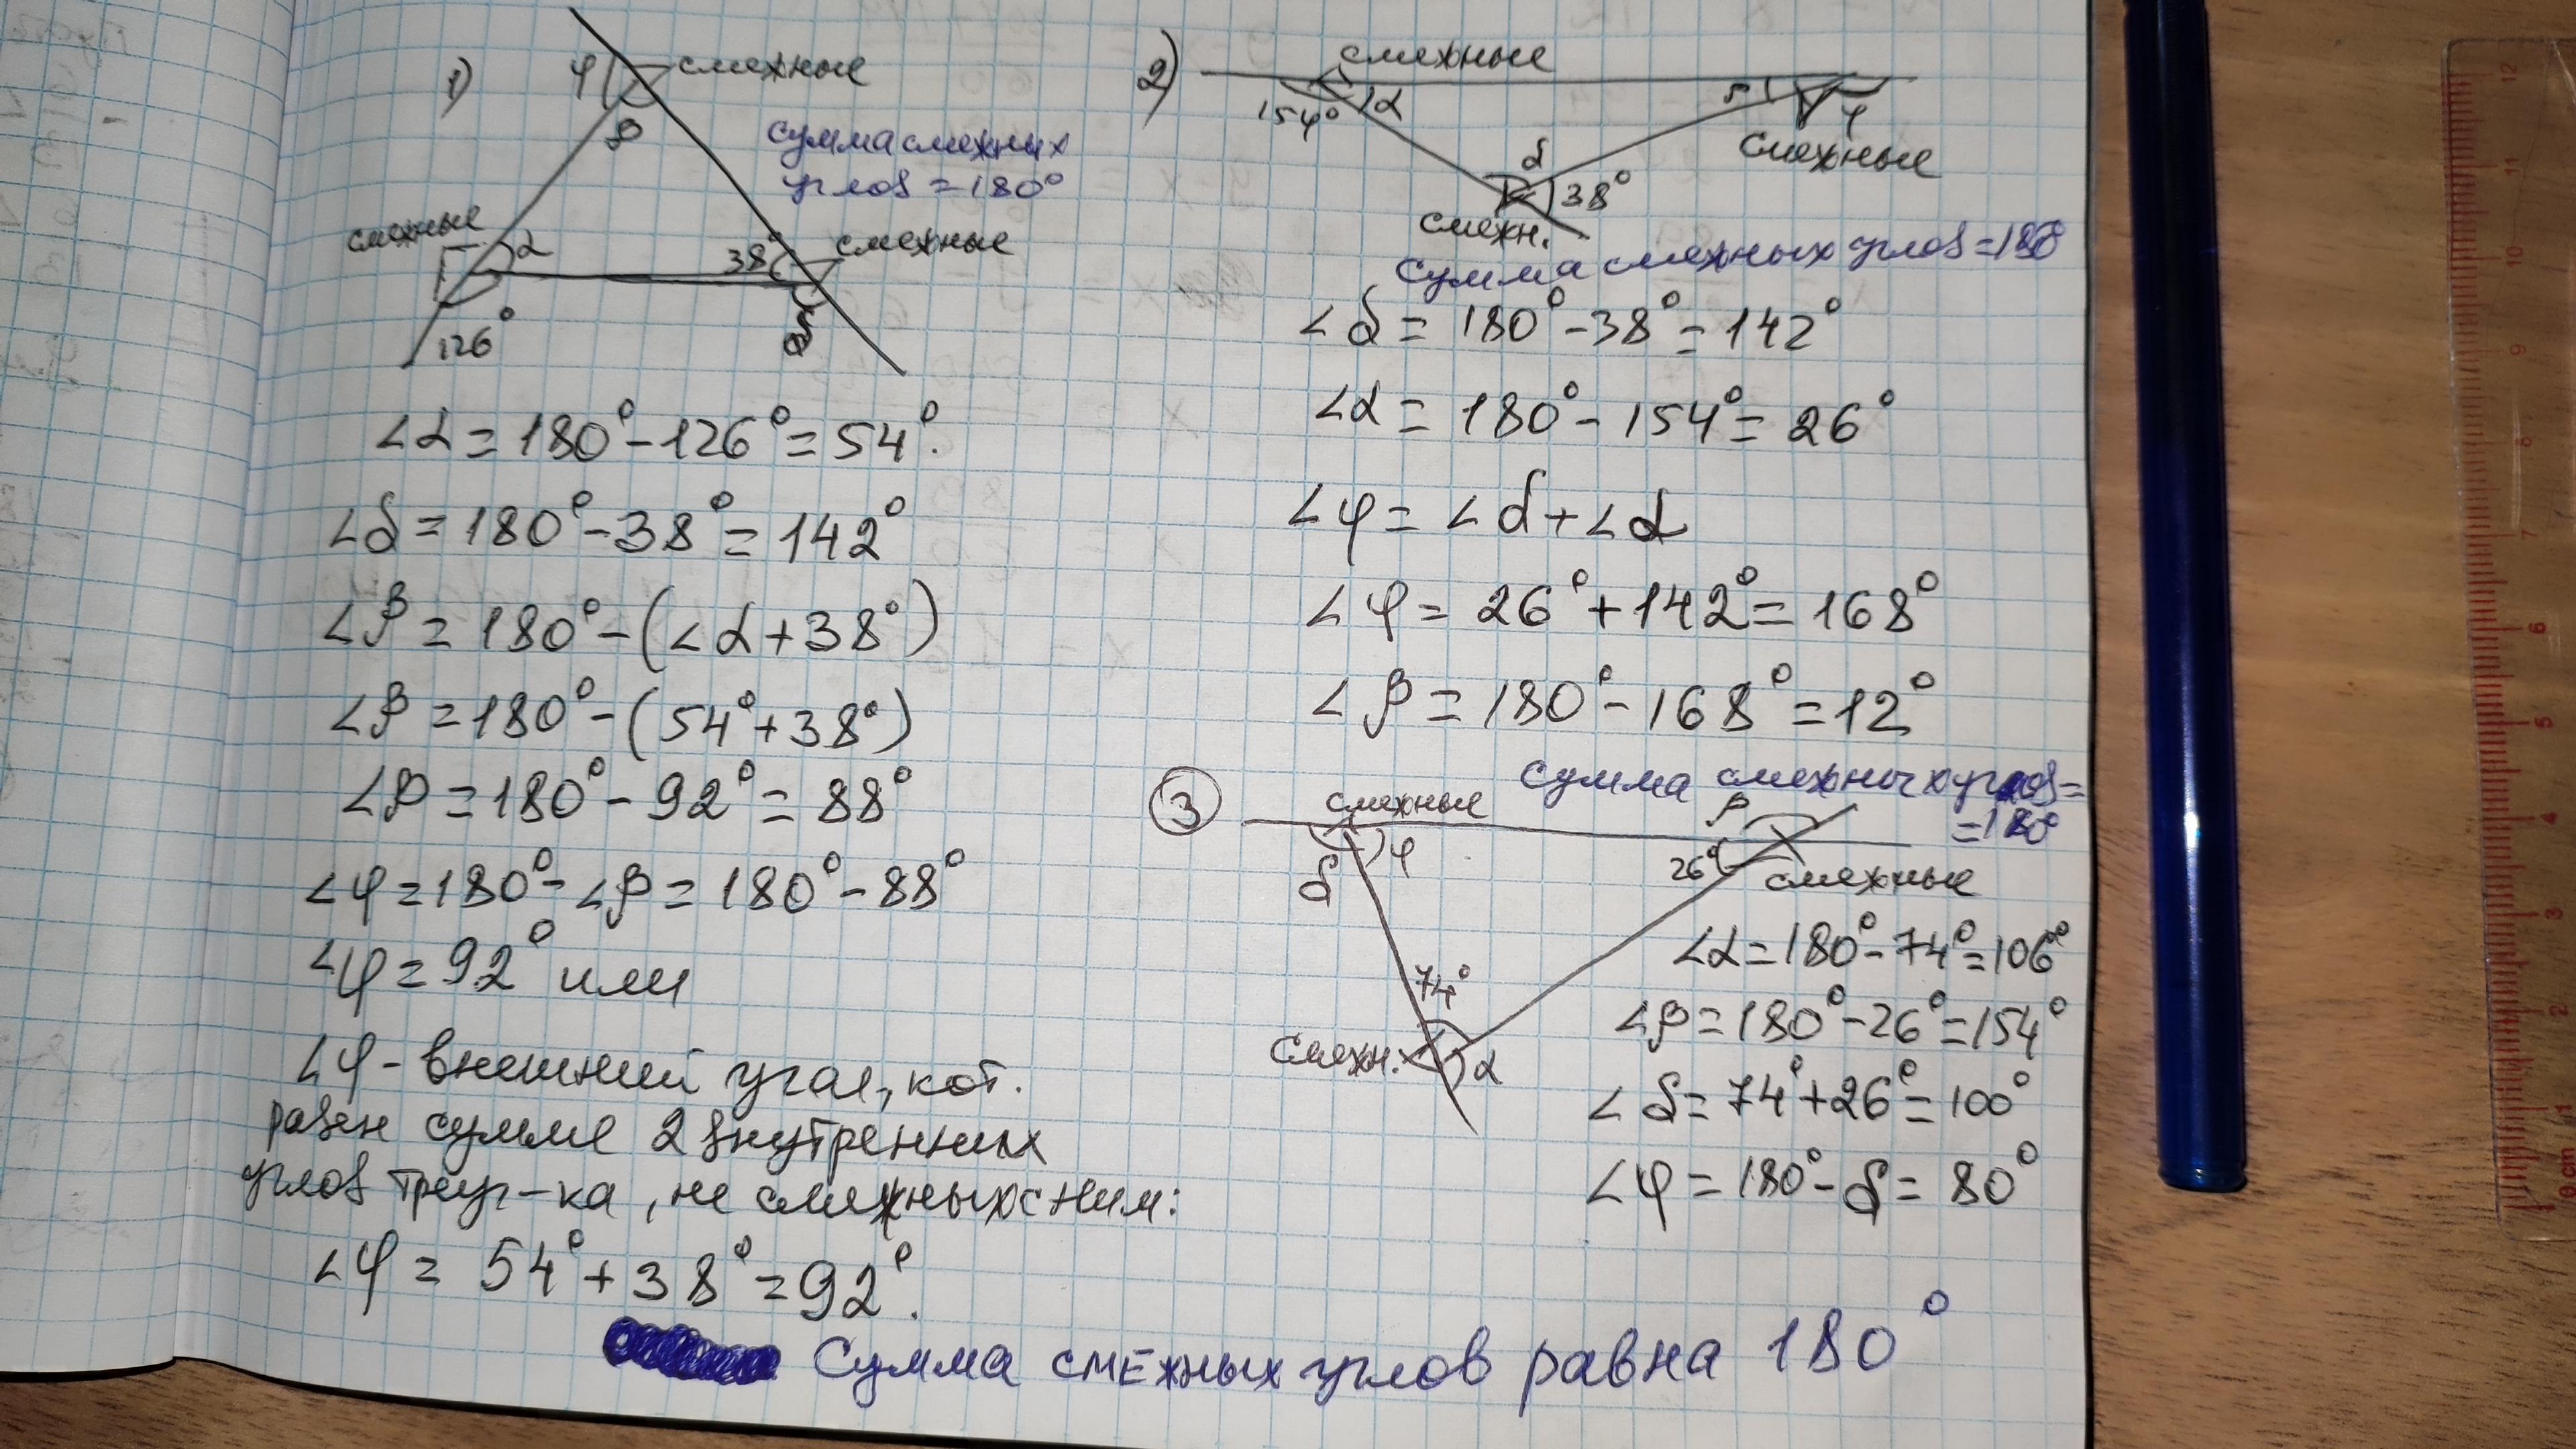 1)
φ
смежные
β
сумма смежных
углов = 180°
смежные
α
38°
смежные
126°
∠α = 180° - 126° = 54°.
∠δ = 180° - 38° = 142°
∠β = 180° - (∠α + 38°)
∠β = 180° - (54° + 38°)
∠β = 180° - 92° = 88°
∠φ = 180° - ∠β = 180° - 88°
∠φ = 92° или
∠φ - внешний угол, кот.
равен сумме 2 внутренних
углов треуг-ка, не смежных с ним:
∠φ = 54° + 38° = 92°.
2)
смежные
154°
α
φ
смежные
δ
38°
смежн.
Сумма смежных углов = 180°
∠δ = 180° - 38° = 142°
∠α = 180° - 154° = 26°
∠φ = ∠δ + ∠α
∠φ = 26° + 142° = 168°
∠β = 180° - 168° = 12°
3
Сумма смежных углов =
= 180°
смежные
β
δ
φ
26°
смежные
74°
Смежн.
α
∠α = 180° - 74° = 106°
∠β = 180° - 26° = 154°
∠δ = 74° + 26° = 100°
∠φ = 180° - δ = 80°
Сумма смежных углов равна 180°